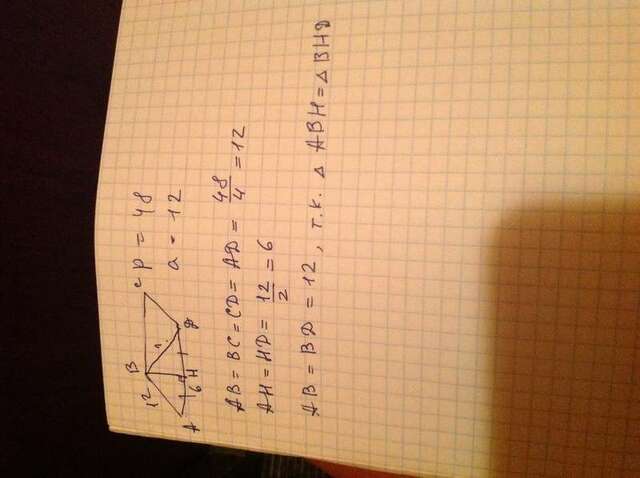 B C
12
A 6 H D
P = 48
a = 12
AB = BC = CD = AD = 48/4 = 12
AH = HD = 12/2 = 6
AB = BD = 12, т.к. △ ABH = △ BHD